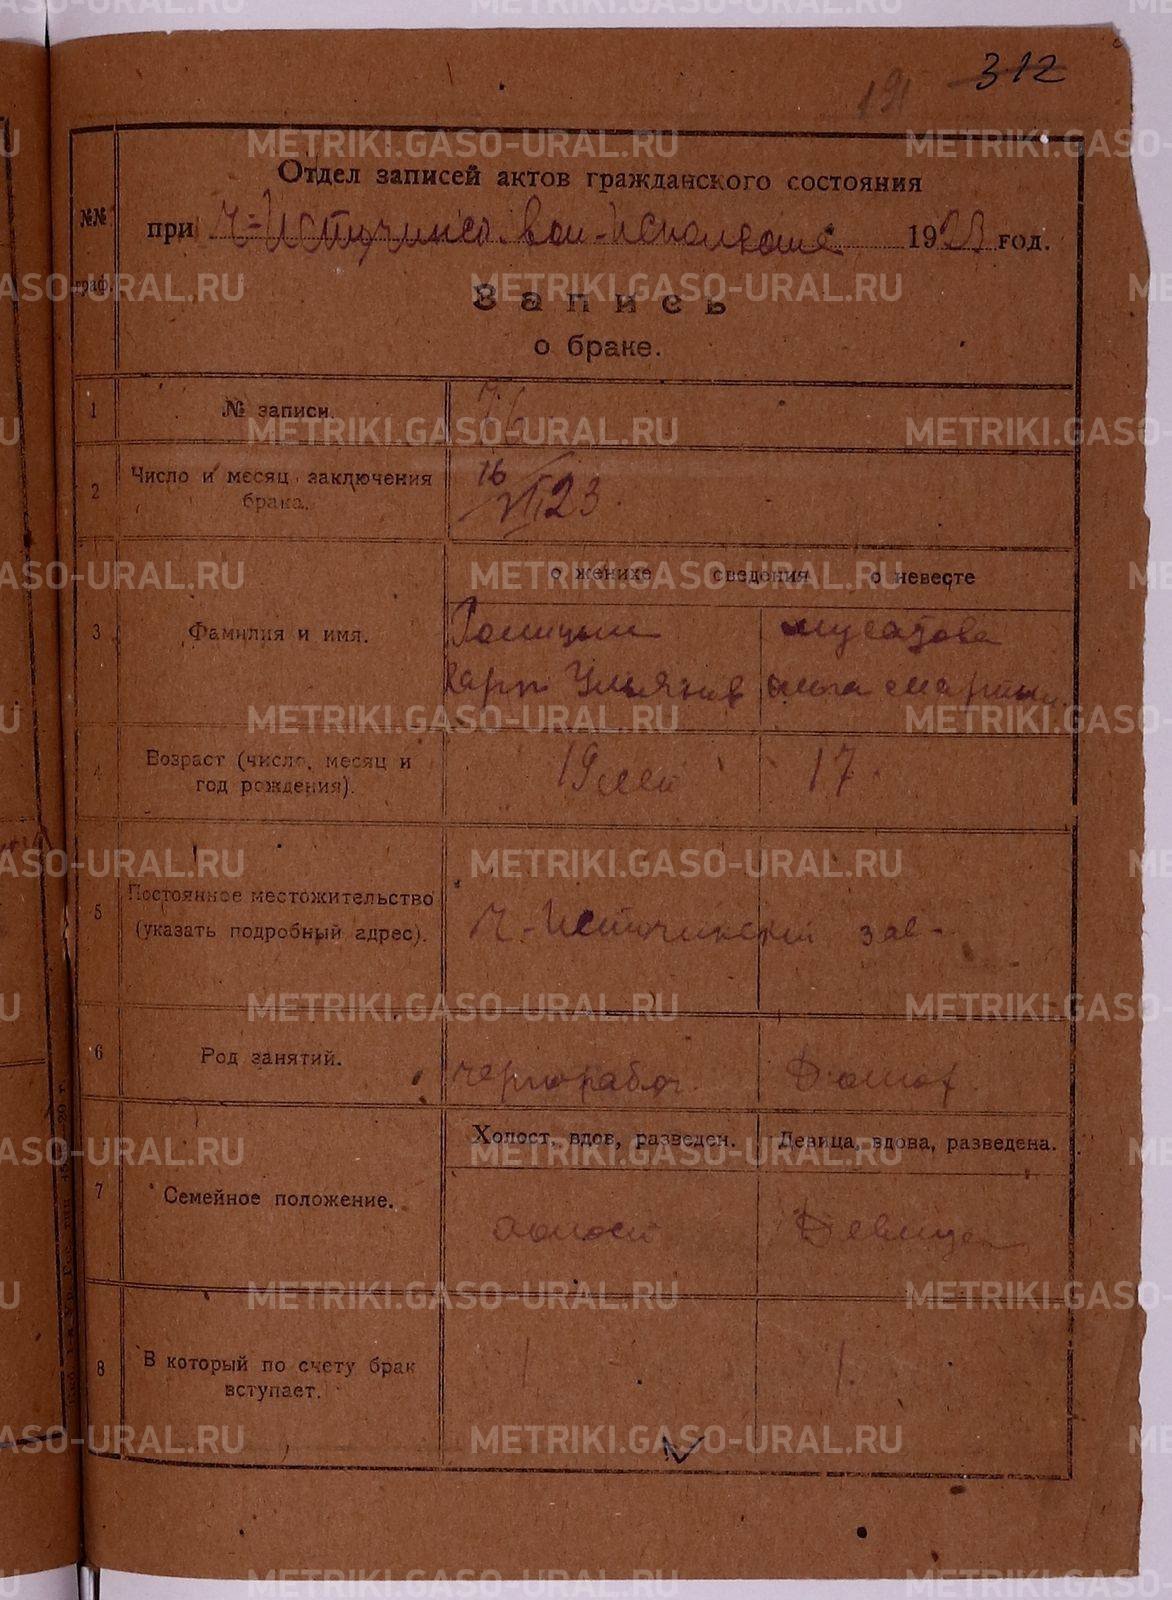 312
191
Отдел записей актов гражданского состояния
№№ граф.
при Ч-Источинск. вол-Исполкоме 1923 год.
Запись
о браке.
1 № записи. 76
2 Число и месяц заключения брака. 16/VII 23.
о женихе сведения о невесте
3 Фамилия и имя.
Мусатова
Карп Ульянов Ольга Мартын.
4 Возраст (число, месяц и год рождения). 19 лет 17.
5 Постоянное местожительство (указать подробный адрес). Ч-Источинский зав-
6 Род занятий. чернорабоч. Домох.
Холост, вдов, разведен. Девица, вдова, разведена.
7 Семейное положение. холост Девица
8 В который по счету брак вступает. 1 1.
METRIKI.GASO-URAL.RU